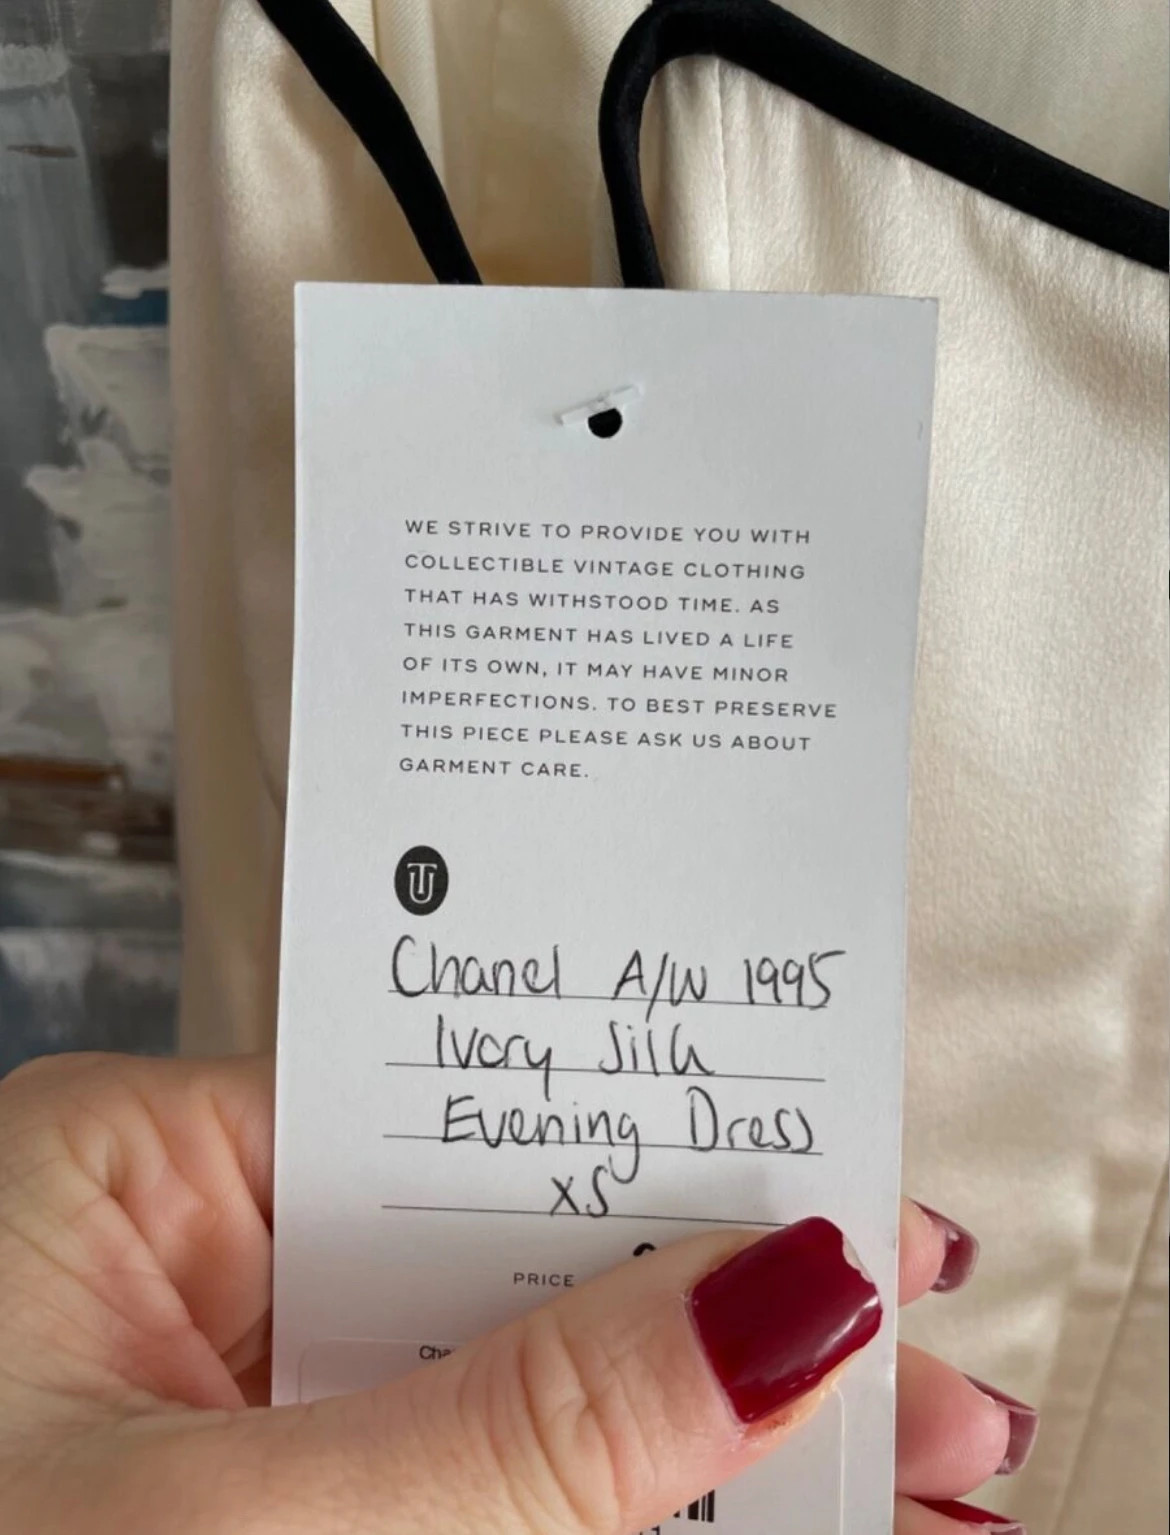 WE STRIVE TO PROVIDE YOU WITH
COLLECTIBLE VINTAGE CLOTHING
THAT HAS WITHSTOOD TIME. AS
THIS GARMENT HAS LIVED A LIFE
OF ITS OWN, IT MAY HAVE MINOR
IMPERFECTIONS. TO BEST PRESERVE
THIS PIECE PLEASE ASK US ABOUT
GARMENT CARE.
Chanel A/W 1995
Ivory Silk
Evening Dress
XS
PRICE